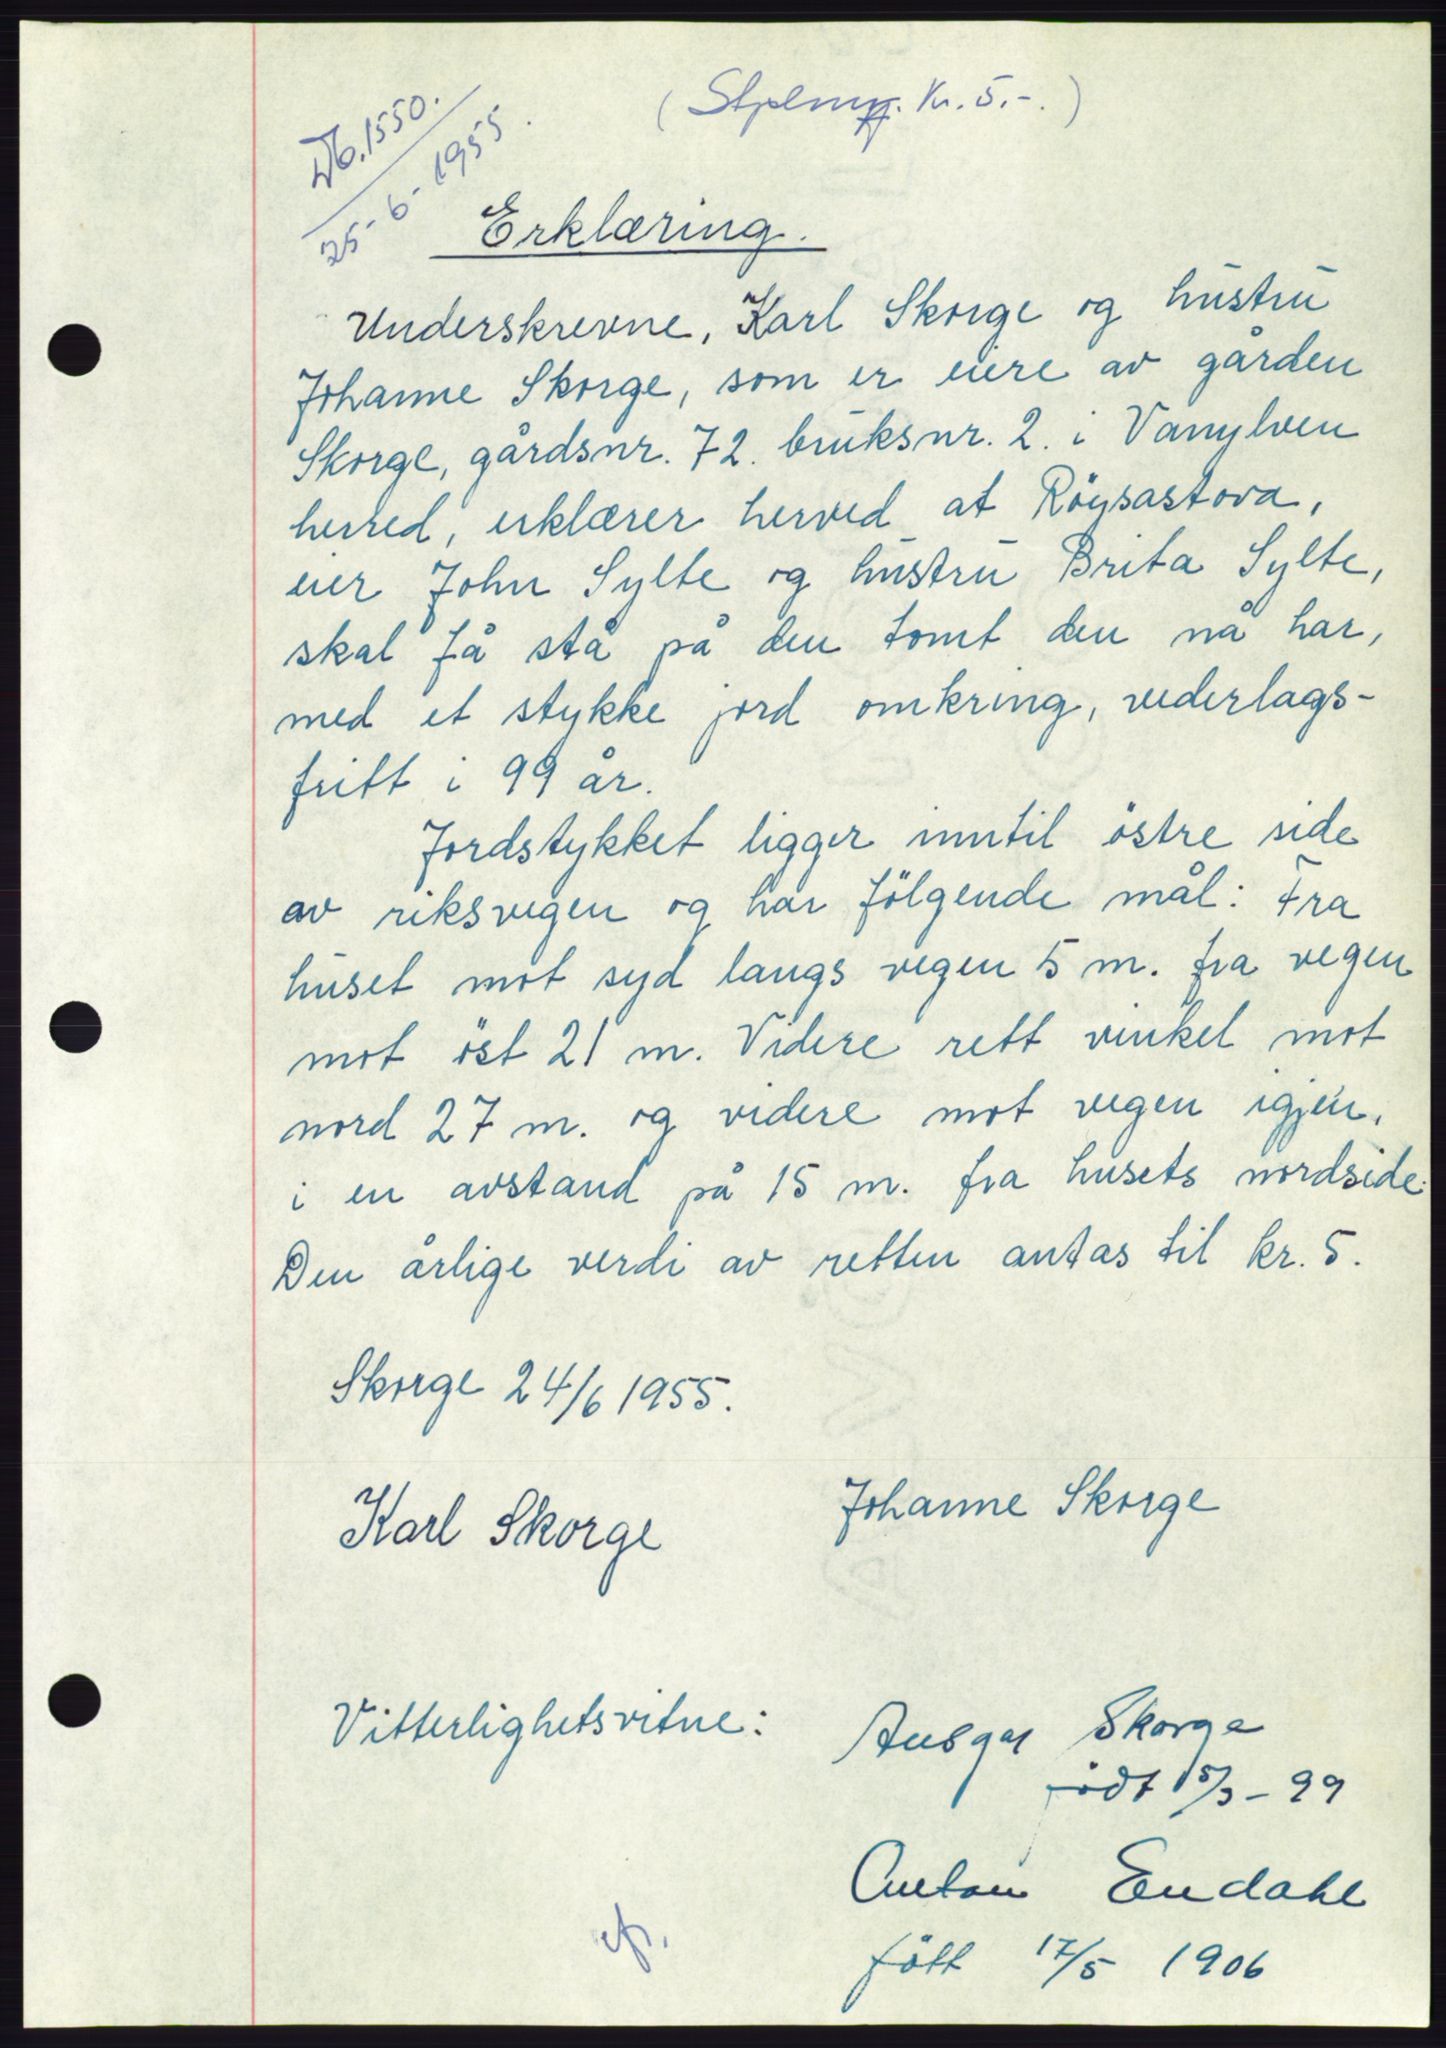 (Stplmf. Kr. 5.-.)
Db. 1550.
25-6-1955.
Erklæring.
Underskrevne, Karl Skorge og hustru
Johanne Skorge, som er eiere av gården
Skorge, gårdsnr. 72. bruksnr. 2. i Vanylven
herred, erklærer herved at Röysastova,
eier John Sylte og hustru Brita Sylte,
skal få stå på den tomt den nå har,
med et stykke jord omkring, vederlags-
fritt i 99 år.
Jordstykket ligger inntil östre side
av riksvegen og har fölgende mål: Fra
huset mot syd langs vegen 5 m. fra vegen
mot öst 21 m. Videre rett vinkel mot
nord 27 m. og videre mot vegen igjen,
i en avstand på 15 m. fra husets nordside.
Den årlige verdi av retten antas til kr. 5.
Skorge 24/6 1955.
Karl Skorge
Johanne Skorge
Vitterlighetsvitne:
Ansgar Skorge
födt 15/3-99
Anton Endahl
fött 17/5 1906